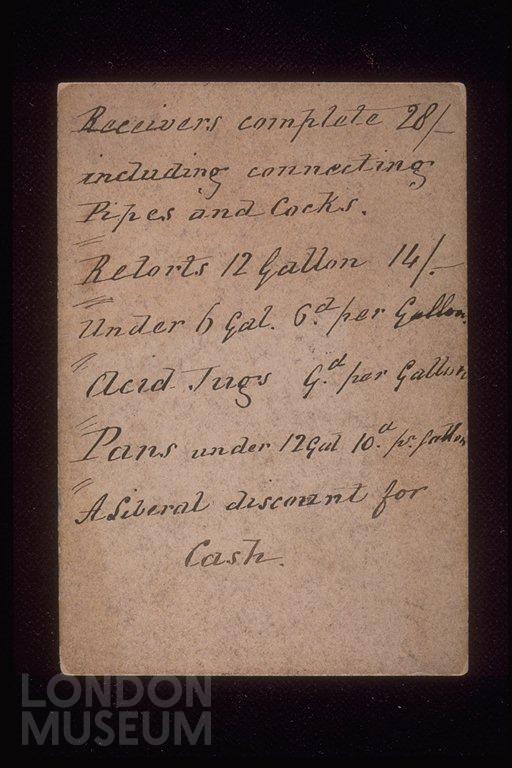 Receivers complete 28/-
including connecting
Pipes and Cocks.
Retorts 12 Gallon 14/-
Under 6 Gal. 6.d per Gallon.
Acid Jugs 9.d per Gallon
Pans under 12 Gal 10.d pr. Gallon
A Liberal discount for
Cash.
LONDON
MUSEUM